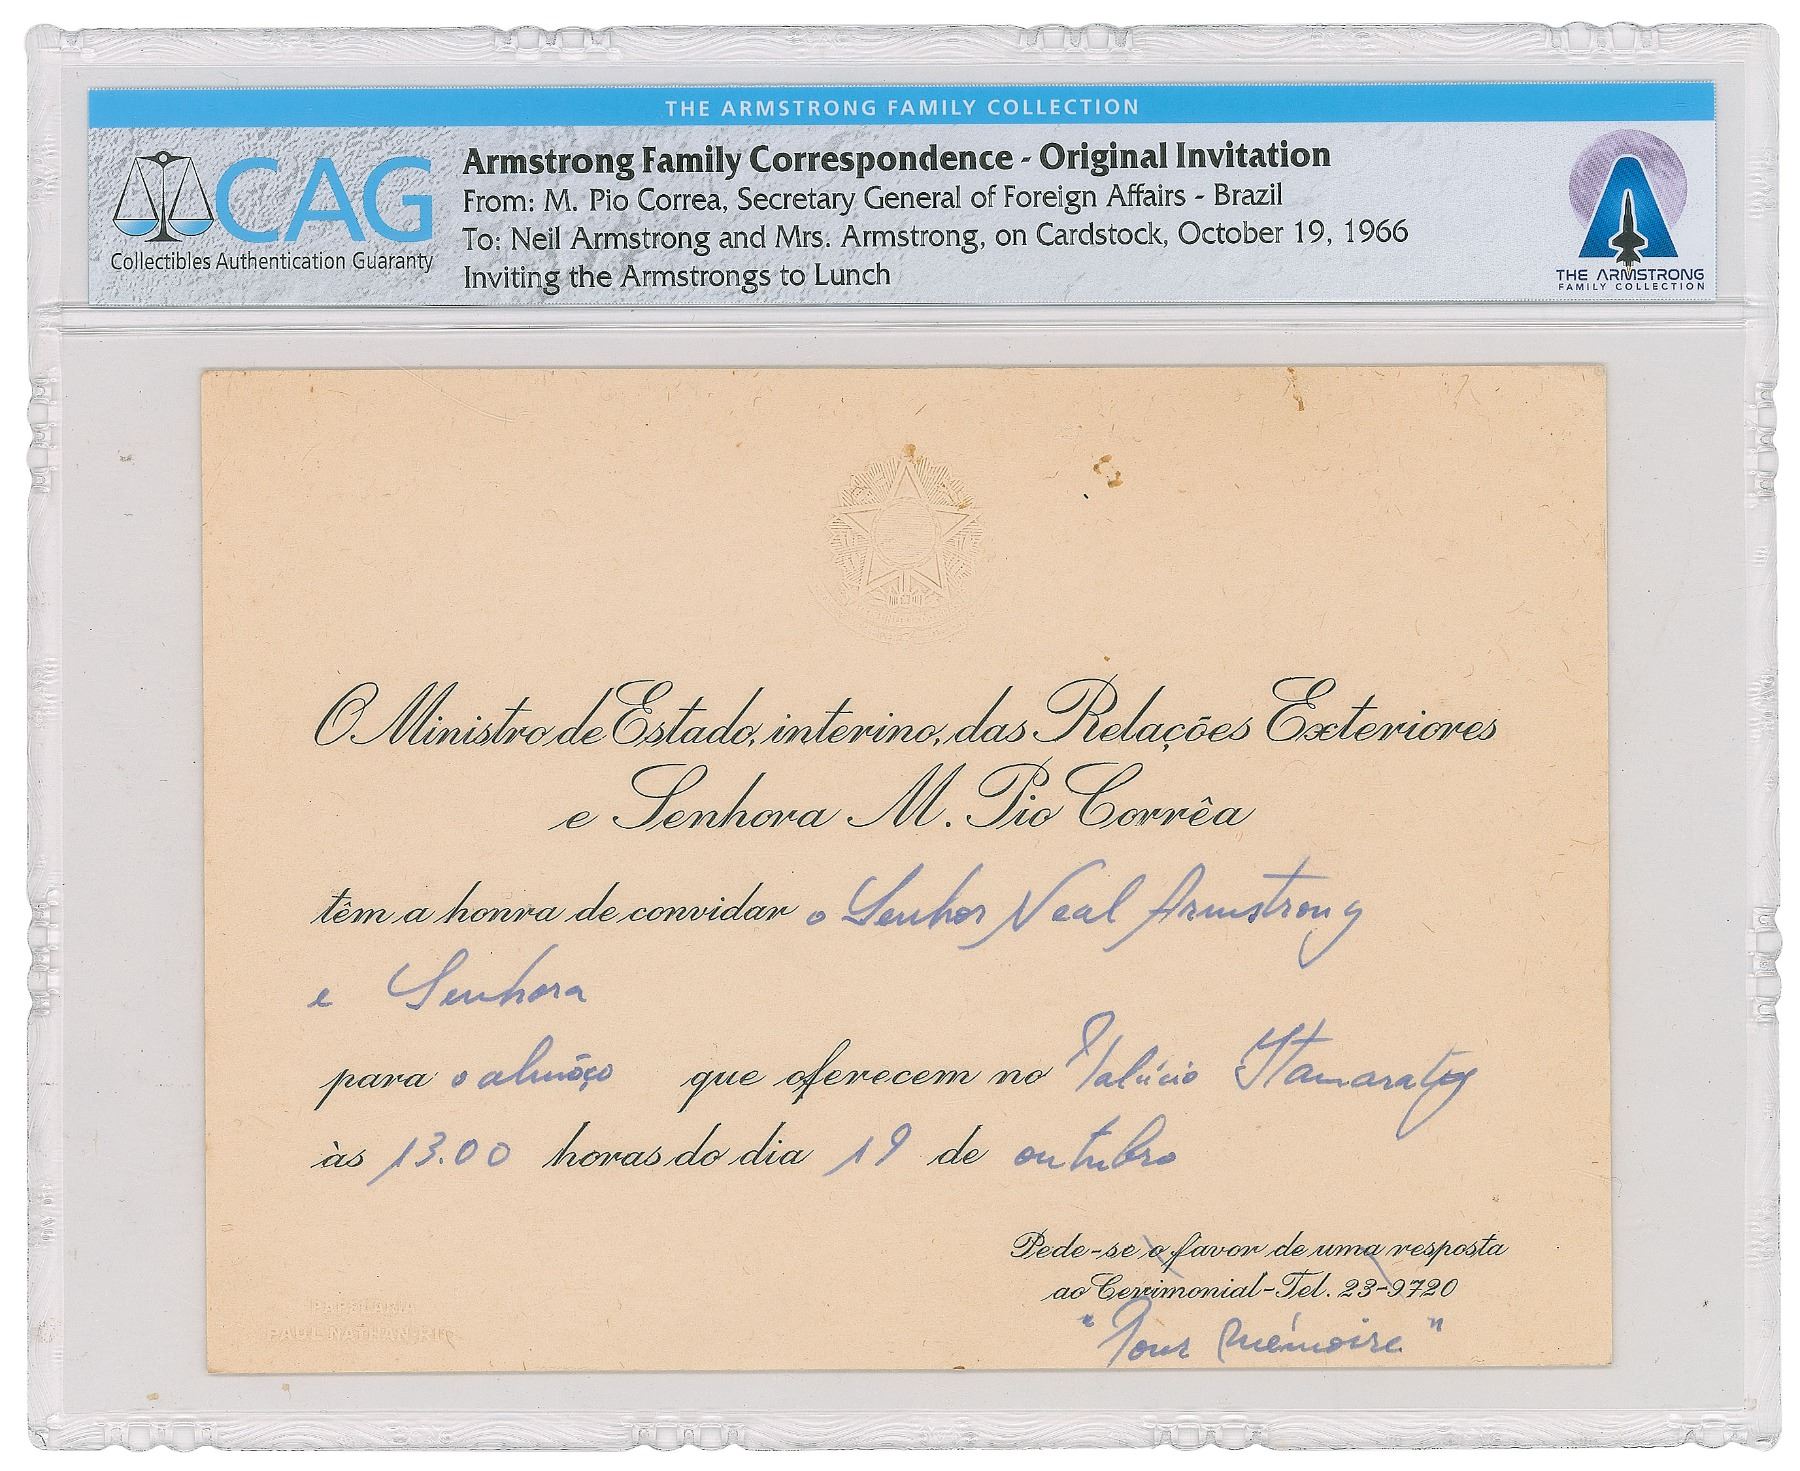 THE ARMSTRONG FAMILY COLLECTION
CAG
Collectibles Authentication Guaranty
Armstrong Family Correspondence - Original Invitation
From: M. Pio Correa, Secretary General of Foreign Affairs - Brazil
To: Neil Armstrong and Mrs. Armstrong, on Cardstock, October 19, 1966
Inviting the Armstrongs to Lunch
THE ARMSTRONG
FAMILY COLLECTION
O Ministro de Estado, interino, das Relações Exteriores
e Senhora M. Pio Corrêa
têm a honra de convidar o Senhor Neal Armstrong
e Senhora
para o almôço que oferecem no Palácio Itamaraty
às 13.00 horas do dia 19 de outubro
Pede-se o favor de uma resposta
ao Cerimonial-Tel. 23-9720
"Pour mémoire"
PAPELARIA
PAUL NATHAN-RIO